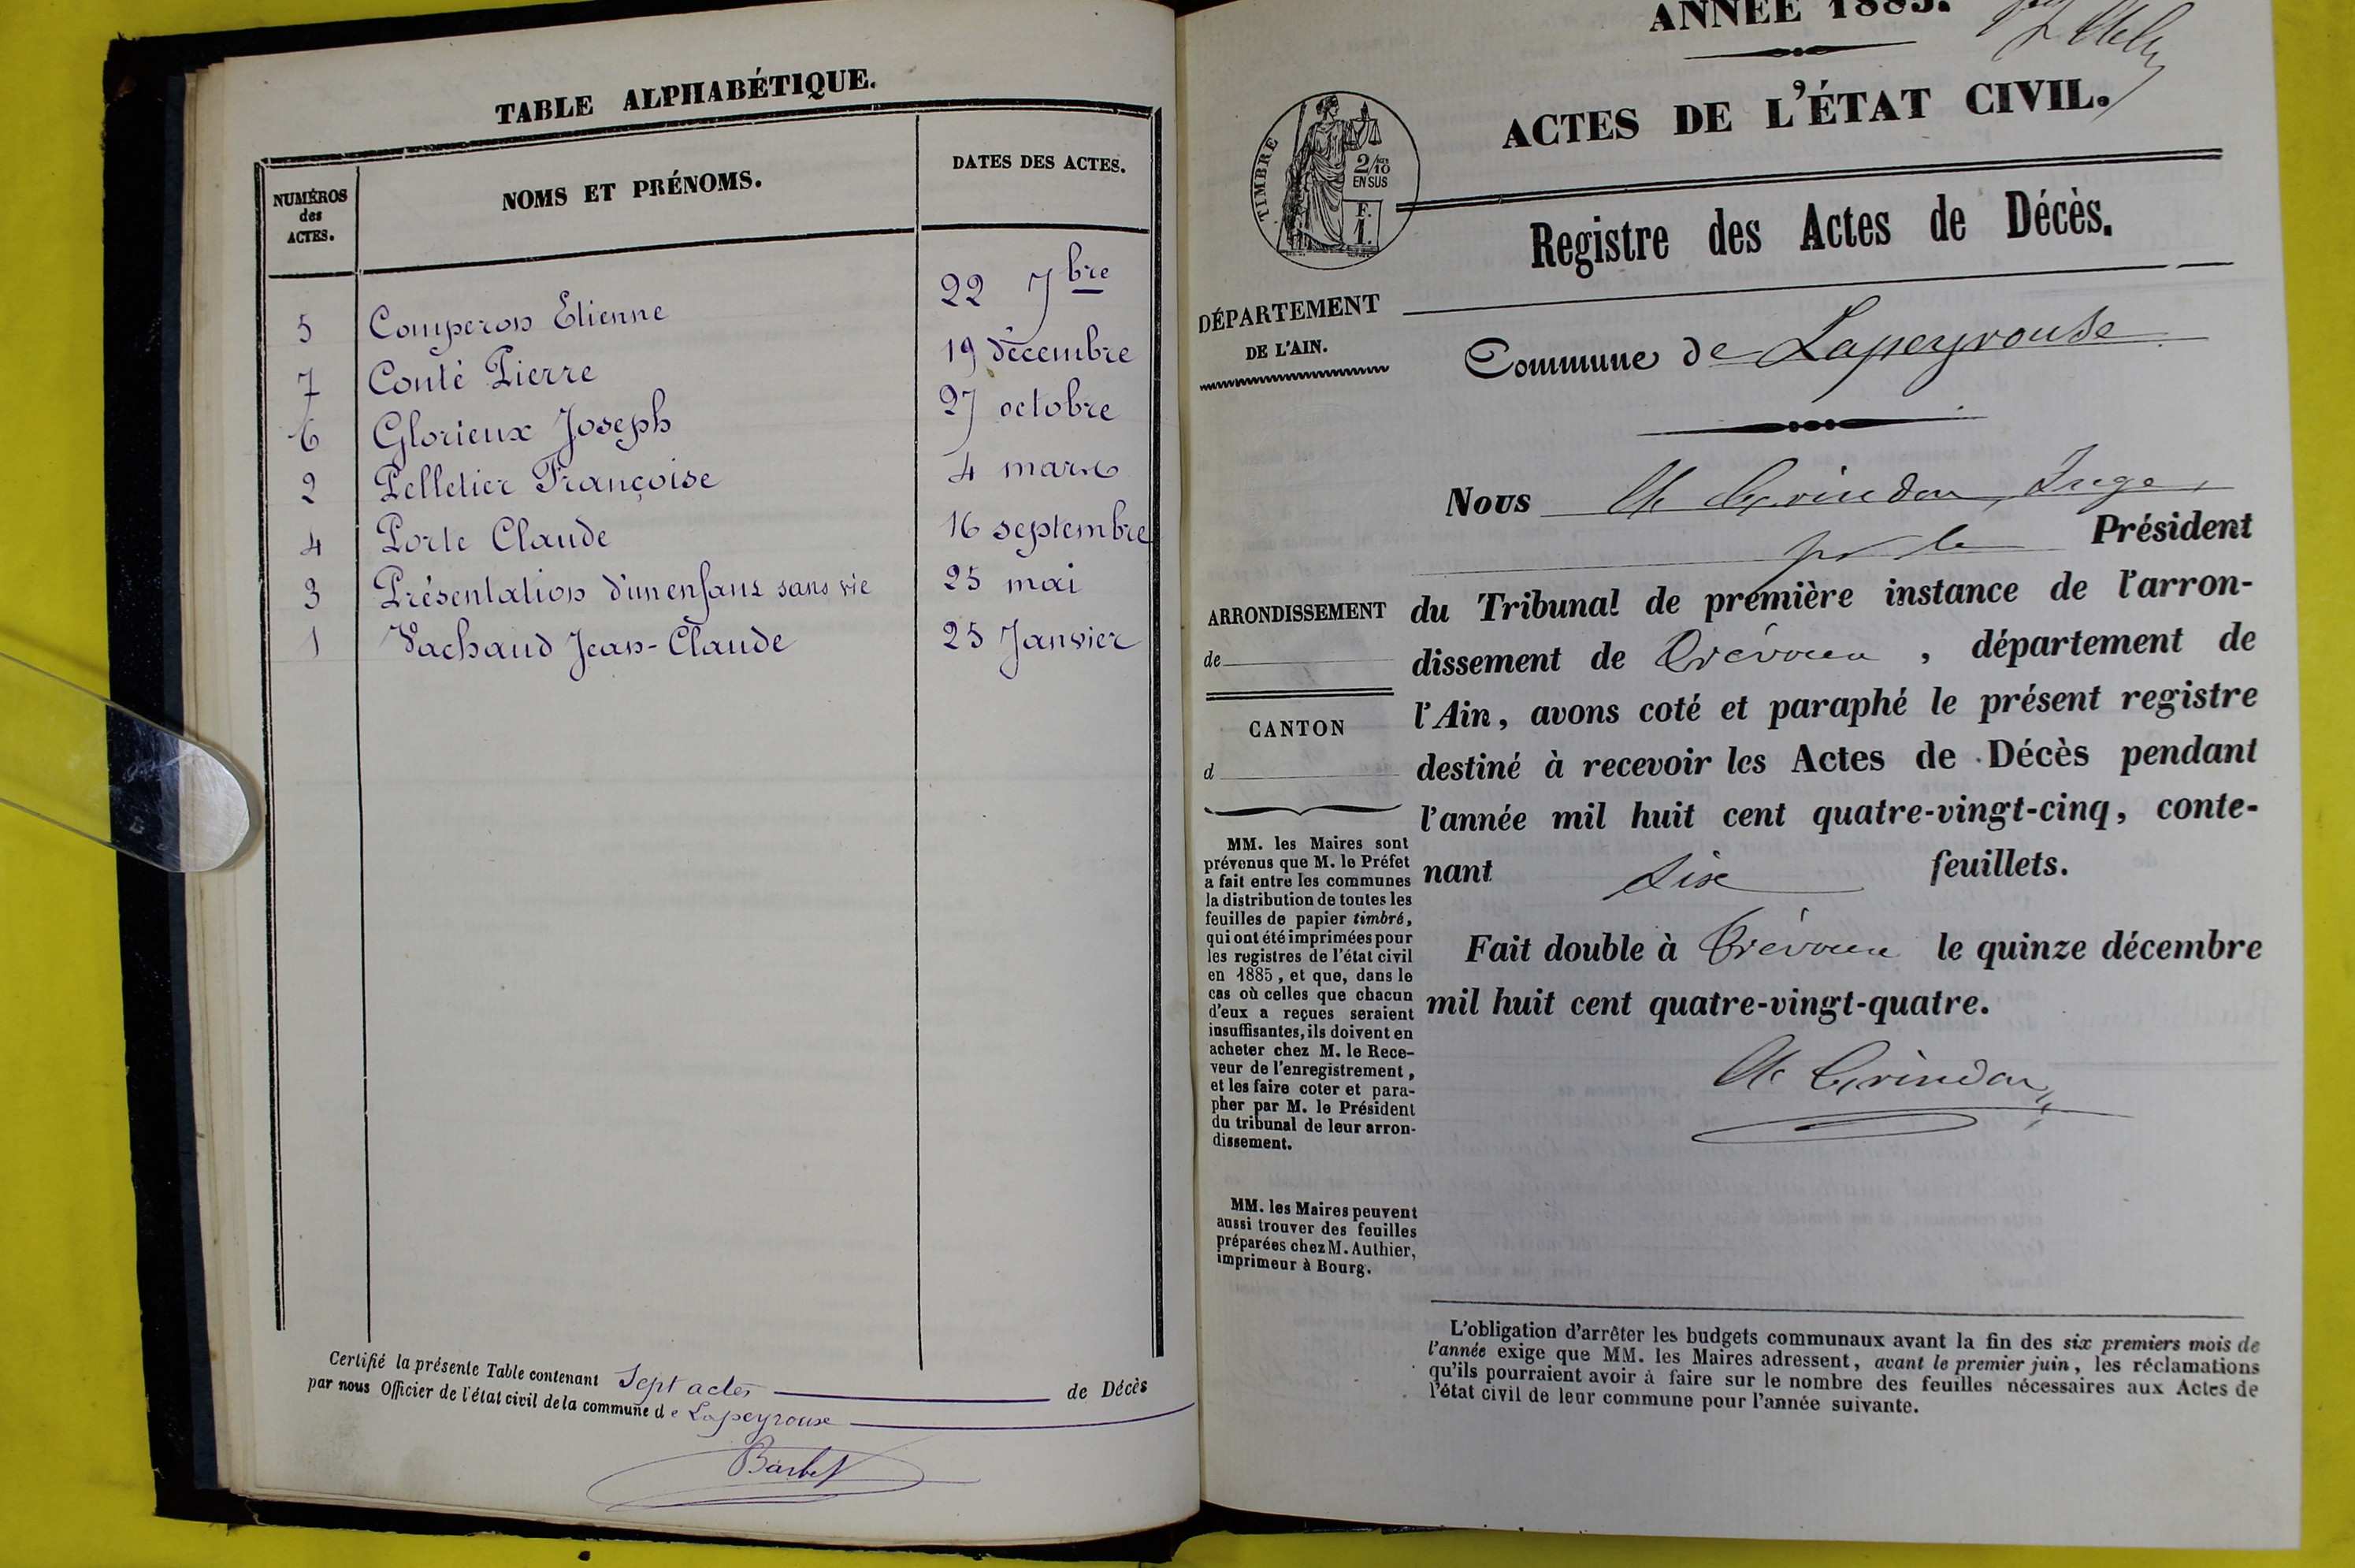 TABLE ALPHABÉTIQUE.
NUMÉROS
des
ACTES.
NOMS ET PRÉNOMS.
DATES DES ACTES.
5 Comperon Etienne 22 7bre
7 Conté Pierre 19 décembre
6 Glorieux Joseph 27 octobre
2 Pelletier Françoise 4 mars
4 Porte Claude 16 septembre
3 Présentation d'un enfant sans vie 25 mai
1 Vachaud Jean-Claude 25 Janvier
Certifié la présente Table contenant Sept actes de Décès
par nous Officier de l'état civil de la commune de Lapeyrouse
Barbet
ANNÉE 1885.
ACTES DE L'ÉTAT CIVIL.
TIMBRE
2/10
EN SUS
F.
1.
Registre des Actes de Décès.
DÉPARTEMENT
DE L'AIN.
Commune de Lapeyrouse
Nous Grindon, Juge,
pr le Président
du Tribunal de première instance de l'arron-
dissement de Trévoux, département de
l'Ain, avons coté et paraphé le présent registre
destiné à recevoir les Actes de Décès pendant
l'année mil huit cent quatre-vingt-cinq, conte-
nant six feuillets.
Fait double à Trévoux le quinze décembre
mil huit cent quatre-vingt-quatre.
Grindon
ARRONDISSEMENT
de
CANTON
d
MM. les Maires sont
prévenus que M. le Préfet
a fait entre les communes
la distribution de toutes les
feuilles de papier timbré,
qui ont été imprimées pour
les registres de l'état civil
en 1885, et que, dans le
cas où celles que chacun
d'eux a reçues seraient
insuffisantes, ils doivent en
acheter chez M. le Rece-
veur de l'enregistrement,
et les faire coter et para-
pher par M. le Président
du tribunal de leur arron-
dissement.
MM. les Maires peuvent
aussi trouver des feuilles
préparées chez M. Authier,
imprimeur à Bourg.
L'obligation d'arrêter les budgets communaux avant la fin des six premiers mois de
l'année exige que MM. les Maires adressent, avant le premier juin, les réclamations
qu'ils pourraient avoir à faire sur le nombre des feuilles nécessaires aux Actes de
l'état civil de leur commune pour l'année suivante.